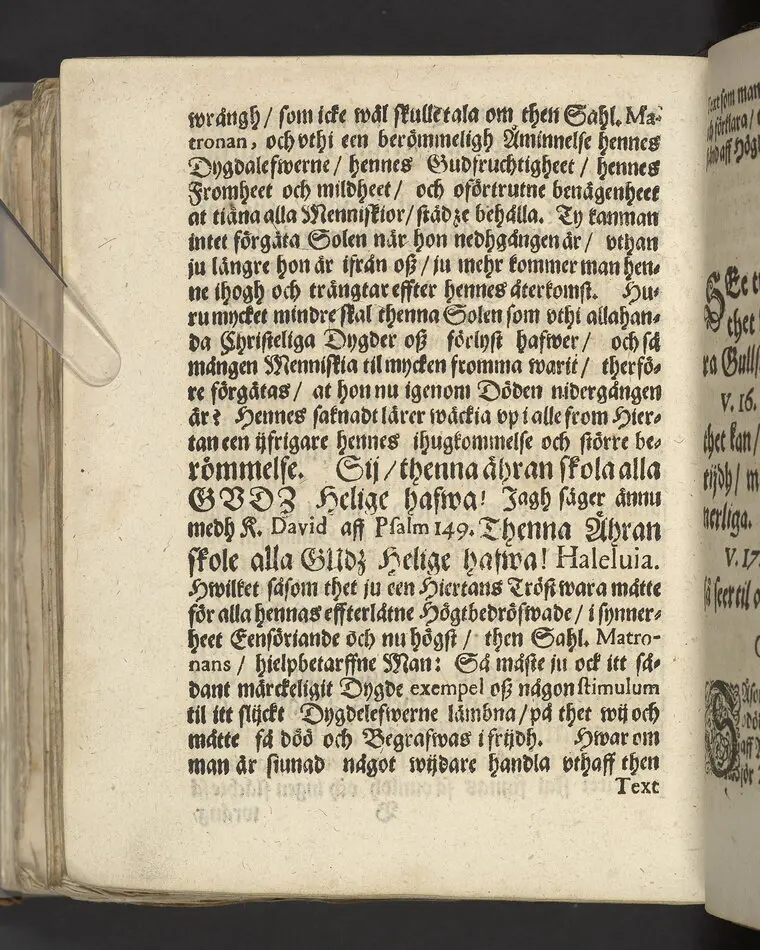 wrångh / som icke wäl skulle tala om then Sahl. Ma-
tronan, och vthi een berömmeligh Åminnelse hennes
Dygdalefwerne / hennes Gudfruchtigheet / hennes
Fromheet och mildheet / och oförtrutne benägenheet
at tiäna alla Menniskior / städze behålla. Ty kan man
intet förgäta Solen när hon nedhgången är / vthan
ju längre hon är ifrån oß / ju mehr kommer man hen-
ne ihogh och trängtar effter hennes återkomst. Hu-
ru mycket mindre skal thenna Solen som vthi allahan-
da Christeliga Dygder oß förlyst hafwer / och så
mången Menniskia til mycken fromma warit / therfö-
re förgätas / at hon nu igenom Döden nidergången
är? Hennes saknadt lärer wäckia vp i alle from Hier-
tan een ijfrigare hennes ihugkommelse och större be-
römmelse. Sij / thenna ähran skola alla
GVDZ Helige hafwa! Jagh säger ännu
medh K. David aff Psalm 149. Thenna Ähran
skole alla GUdz Helige hafwa! Haleluia.
Hwilket såsom thet ju een Hiertans Tröst wara måtte
för alla hennas effterlåtne Högtbedröfwade / i synner-
heet Eensöriande och nu högst / then Sahl. Matro-
nans / hielpbetarffne Man: Så måste ju ock itt så-
dant märckeligit Dygde exempel oß någon stimulum
til itt slijckt Dygdelefwerne lämbna / på thet wij och
måtte få döö och Begrafwas i frijdh. Hwar om
man är siunad något wijdare handla vthaff then
Text
V. 16.
V. 17.